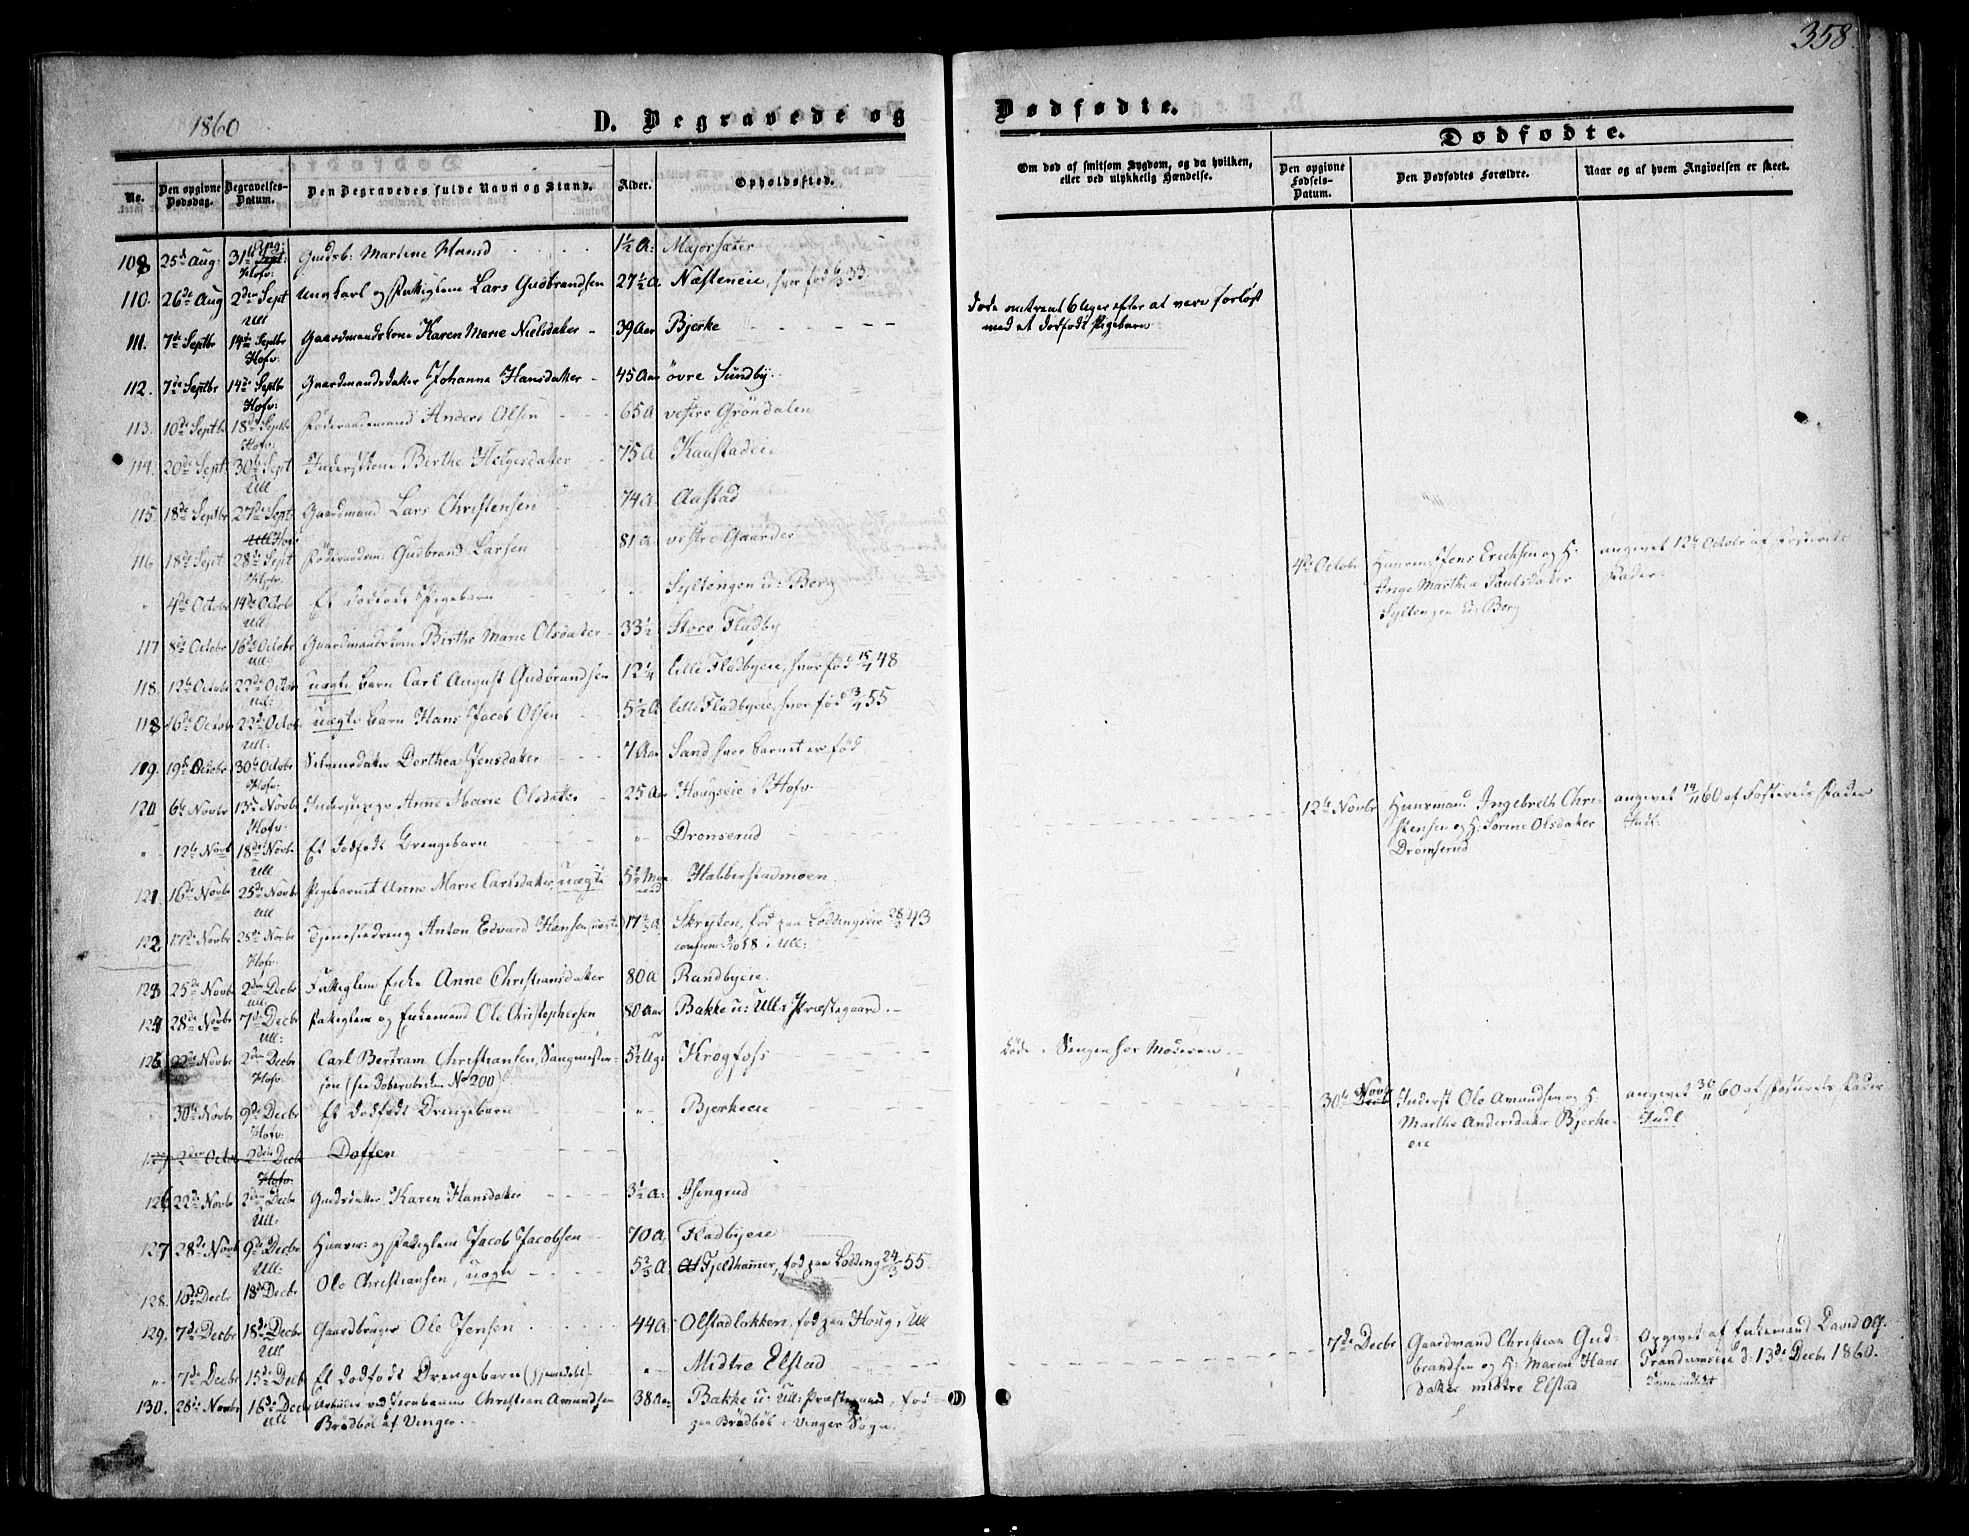 358.
1860
D. Begravede og
Dødfødte.
Dødfødte.
No.
Den opgivne Dødsdag.
Begravelses-Datum.
Den Begravedes fulde Navn og Stand.
Alder.
Opholdssted.
Om død af smitsom Sygdom, og da hvilken, eller ved ulykkelig Hændelse.
Den opgivne Fødsels-Datum.
Den Dødfødtes Forældre.
Naar og af hvem Angivelsen er skeet.
25de Aug: 31te Aug: Hofv: Gudsb: Martine 1½ A: Majorsæter
110. 26de Aug 2den Sept Ull Ungkarl og Lars Gudbrandsen 27½ A Næsteneie, hvor fød 33.
111. 7de Septbr 14de Septbr Hofv: Gaardmandskone Karen Marie Nielsdatter 39 Aar Bjerke
Døde omtrent 6 Uger efter at være forløst
med et dødfødt Pigebarn
112. 7de Septbr 14de Septbr Hofv: Gaardmandsdatter Johanna Hansdatter 45 Aar øvre Sundby
113. 10de Septbr 18de Septbr Hofv: Føderaadsmand Anders Olsen 65 A vestre Gröndalen
114. 20de Sept 30te Sept Ull Inderstkone Berthe Helgesdatter 75 A Kaustadeie
115 18de Septbr 27de Sept Gaardmand Lars Christensen 74 A: Aastad
116 18de Sept 28de Sept Hofv. Gudbrand Larsen 81 A: vestre Gaarder
" 4de Octobr 14de Octobr Ull Et dödfødt Pigebarn " Syltengen u: Berg
4de Octobr Huusm: Jens Erichsen og H:
Inge Marthea Paulsdatter
Syltengen u: Berg
angivet 12te Octobr af Fosterets
Fader.
117 8de Octobr 16de Octobr Ull: Gaardmandskone Birthe Marie Olsdatter 33½ Store Fladby
118. 12te Octobr 22de Octobr Ull: uægte Barn Carl August Gudbrandsen 12¼ lille Fladbyeie, hvor fød 48
118 16de Octobr 22de Octob Ull: uægte Barn Hans Jacob Olsen 5½ A lille Fladbyeie, hvor fød 55
119. 19de Octobr 30te Octobr Hofv: Dorthea Jensdatter 7 Aar Sand hvor Barnet er fød
120 6te Novbr 13de Novbr Hofv. Inderstpige Anne Marie Olsdatter 25 Aar Hougseie i Hofv.
" 12te Novb 18de Novbr Ull Et dödfødt Drengebarn " Drønserud
12te Novbr Huusmand Ingebreth Chri-
stensen og H: Sørine Olsdatter
Drømserud
angivet 60 af Fosterets Fader
Indl:
121 16de Novbr 25de Novbr Ull Pigebarnet Anne Marie Carlsdatter, uægte Habberstadmoen
122 17de Novbr 28de Novbr Hofv. Tjenestedreng Anton Edvard Hansen 17 A Skryten, fød paa Løddingseie 43
confirm: i Ull:
123 25de Novbr 2den Decbr Ull: Enke Anne Christiansdatter 80 A Randbyeie.
124 28de Novbr 7de Decbr Ull: og Enkemand Ole Christophersen 80 Aar Bakke u: Ull: Præstegaard.
125 22de Novbr 2den Decbr Hofv. Carl Bertram Christiansen, Sangmester-
søn (see Daabsrubriken No 200) 5½ Uge Krogfoss
Döde i Sengen hos Moderen
30te Novbr 9de Decbr Hofv: Et dödfødt Drengebarn " Bjerkeeie
30te Novbr Inderst Ole Amundsen og H.
Marthe Andersdatter Bjerke-
eie
angivet 30/11 60 af Fosterets Fader
Indl
127 2den Octobr 2den Decbr Hofv. Doffen
126 22de Novbr 2den Decbr Ull: Gaardsdatter Karen Hansdatter 3½ A: Asengrud
127 28de Novb 9de Decbr Ull: Huusm: og Jacob Jacobsen 70 A Fladbyeie
128. 10de Decbr 18de Decbr Ole Christiansen, uægte 5 A: Fjeldhamer, fød paa Lødding 24/3 55
129. 7de Decbr 18de Decbr Ull Gaardbruger Ole Jensen 44 A: Olstadløkken, fød paa Houg i Ull
" 7de Decbr 15de Decb Et dødfødt Drengebarn (hjemdøbt) " Midtre Elstad
7de Decbr Gaardmand Christian Gud-
brandsen og H: Maren Hans
datter midtre Elstad
Opgivet af Enkemand David
d: 13de Decbr 1860.
130. 28de Novbr 16de Decbr Ull Arbeider ved Jernbanen Christian Amundsen
Brødbøl af Vinger. 38 Aar Bakke u: Ull: Præstegaard, fød
paa Brødbøl i Vinger Sogn.